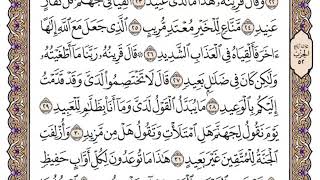 ٢٢ وَقَالَ قَرِينُهُ هَٰذَا مَا لَدَىَّ عَتِيدٌ ٢٣ أَلْقِيَا فِى جَهَنَّمَ كُلَّ كَفَّارٍ
عَنِيدٍ ٢٤ مَنَّاعٍ لِلْخَيْرِ مُعْتَدٍ مُرِيبٍ ٢٥ الَّذِى جَعَلَ مَعَ اللَّهِ إِلَٰهًا
ءَاخَرَ فَأَلْقِيَاهُ فِى الْعَذَابِ الشَّدِيدِ ٢٦ قَالَ قَرِينُهُ رَبَّنَا مَا أَطْغَيْتُهُ
وَلَٰكِنْ كَانَ فِى ضَلَالٍ بَعِيدٍ ٢٧ قَالَ لَا تَخْتَصِمُوا لَدَىَّ وَقَدْ قَدَّمْتُ
إِلَيْكُمْ بِالْوَعِيدِ ٢٨ مَا يُبَدَّلُ الْقَوْلُ لَدَىَّ وَمَا أَنَا بِظَلَّامٍ لِلْعَبِيدِ ٢٩
يَوْمَ نَقُولُ لِجَهَنَّمَ هَلِ امْتَلَأْتِ وَتَقُولُ هَلْ مِنْ مَزِيدٍ ٣٠ وَأُزْلِفَتِ
الْجَنَّةُ لِلْمُتَّقِينَ غَيْرَ بَعِيدٍ ٣١ هَٰذَا مَا تُوعَدُونَ لِكُلِّ أَوَّابٍ حَفِيظٍ